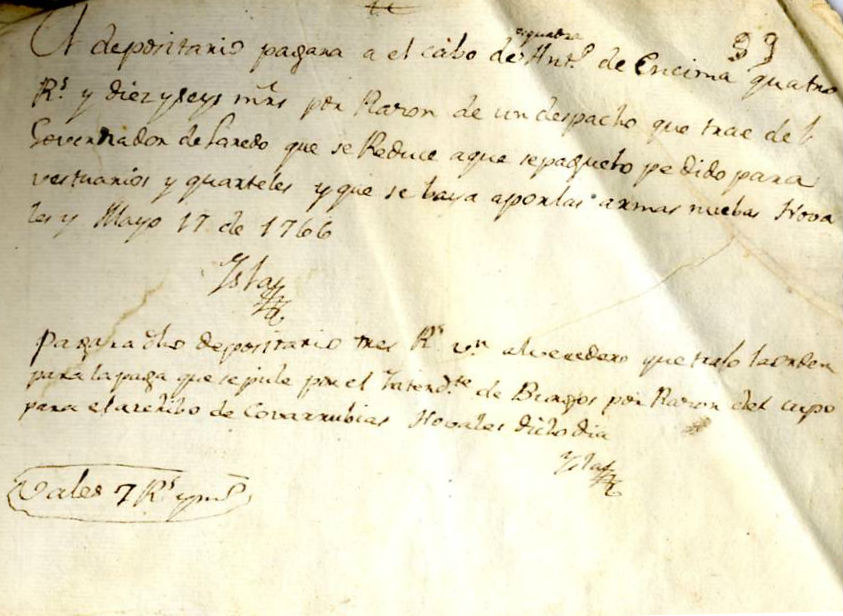 33
esquadra
El depositario pagara a el cabo de Antº de Encima quatro
Rˢ y diez y seys mrs por Razon de un despacho que trae del
Governador de Laredo que se Reduce aque sepague lo pedido para
vestuarios y quarteles y que se baya aporlas armas nuebas Nova
les y Mayo 17 de 1766
Ysla
Pagara dho depositario tres Rˢ vⁿ al veredero que trajo la orden
para la paga que se pide por el Intendᵗᵉ de Burgos por Razon del cupo
para el de Covarrubias Novales dicho dia
Ysla
Vales 7 Rˢ y mˢ